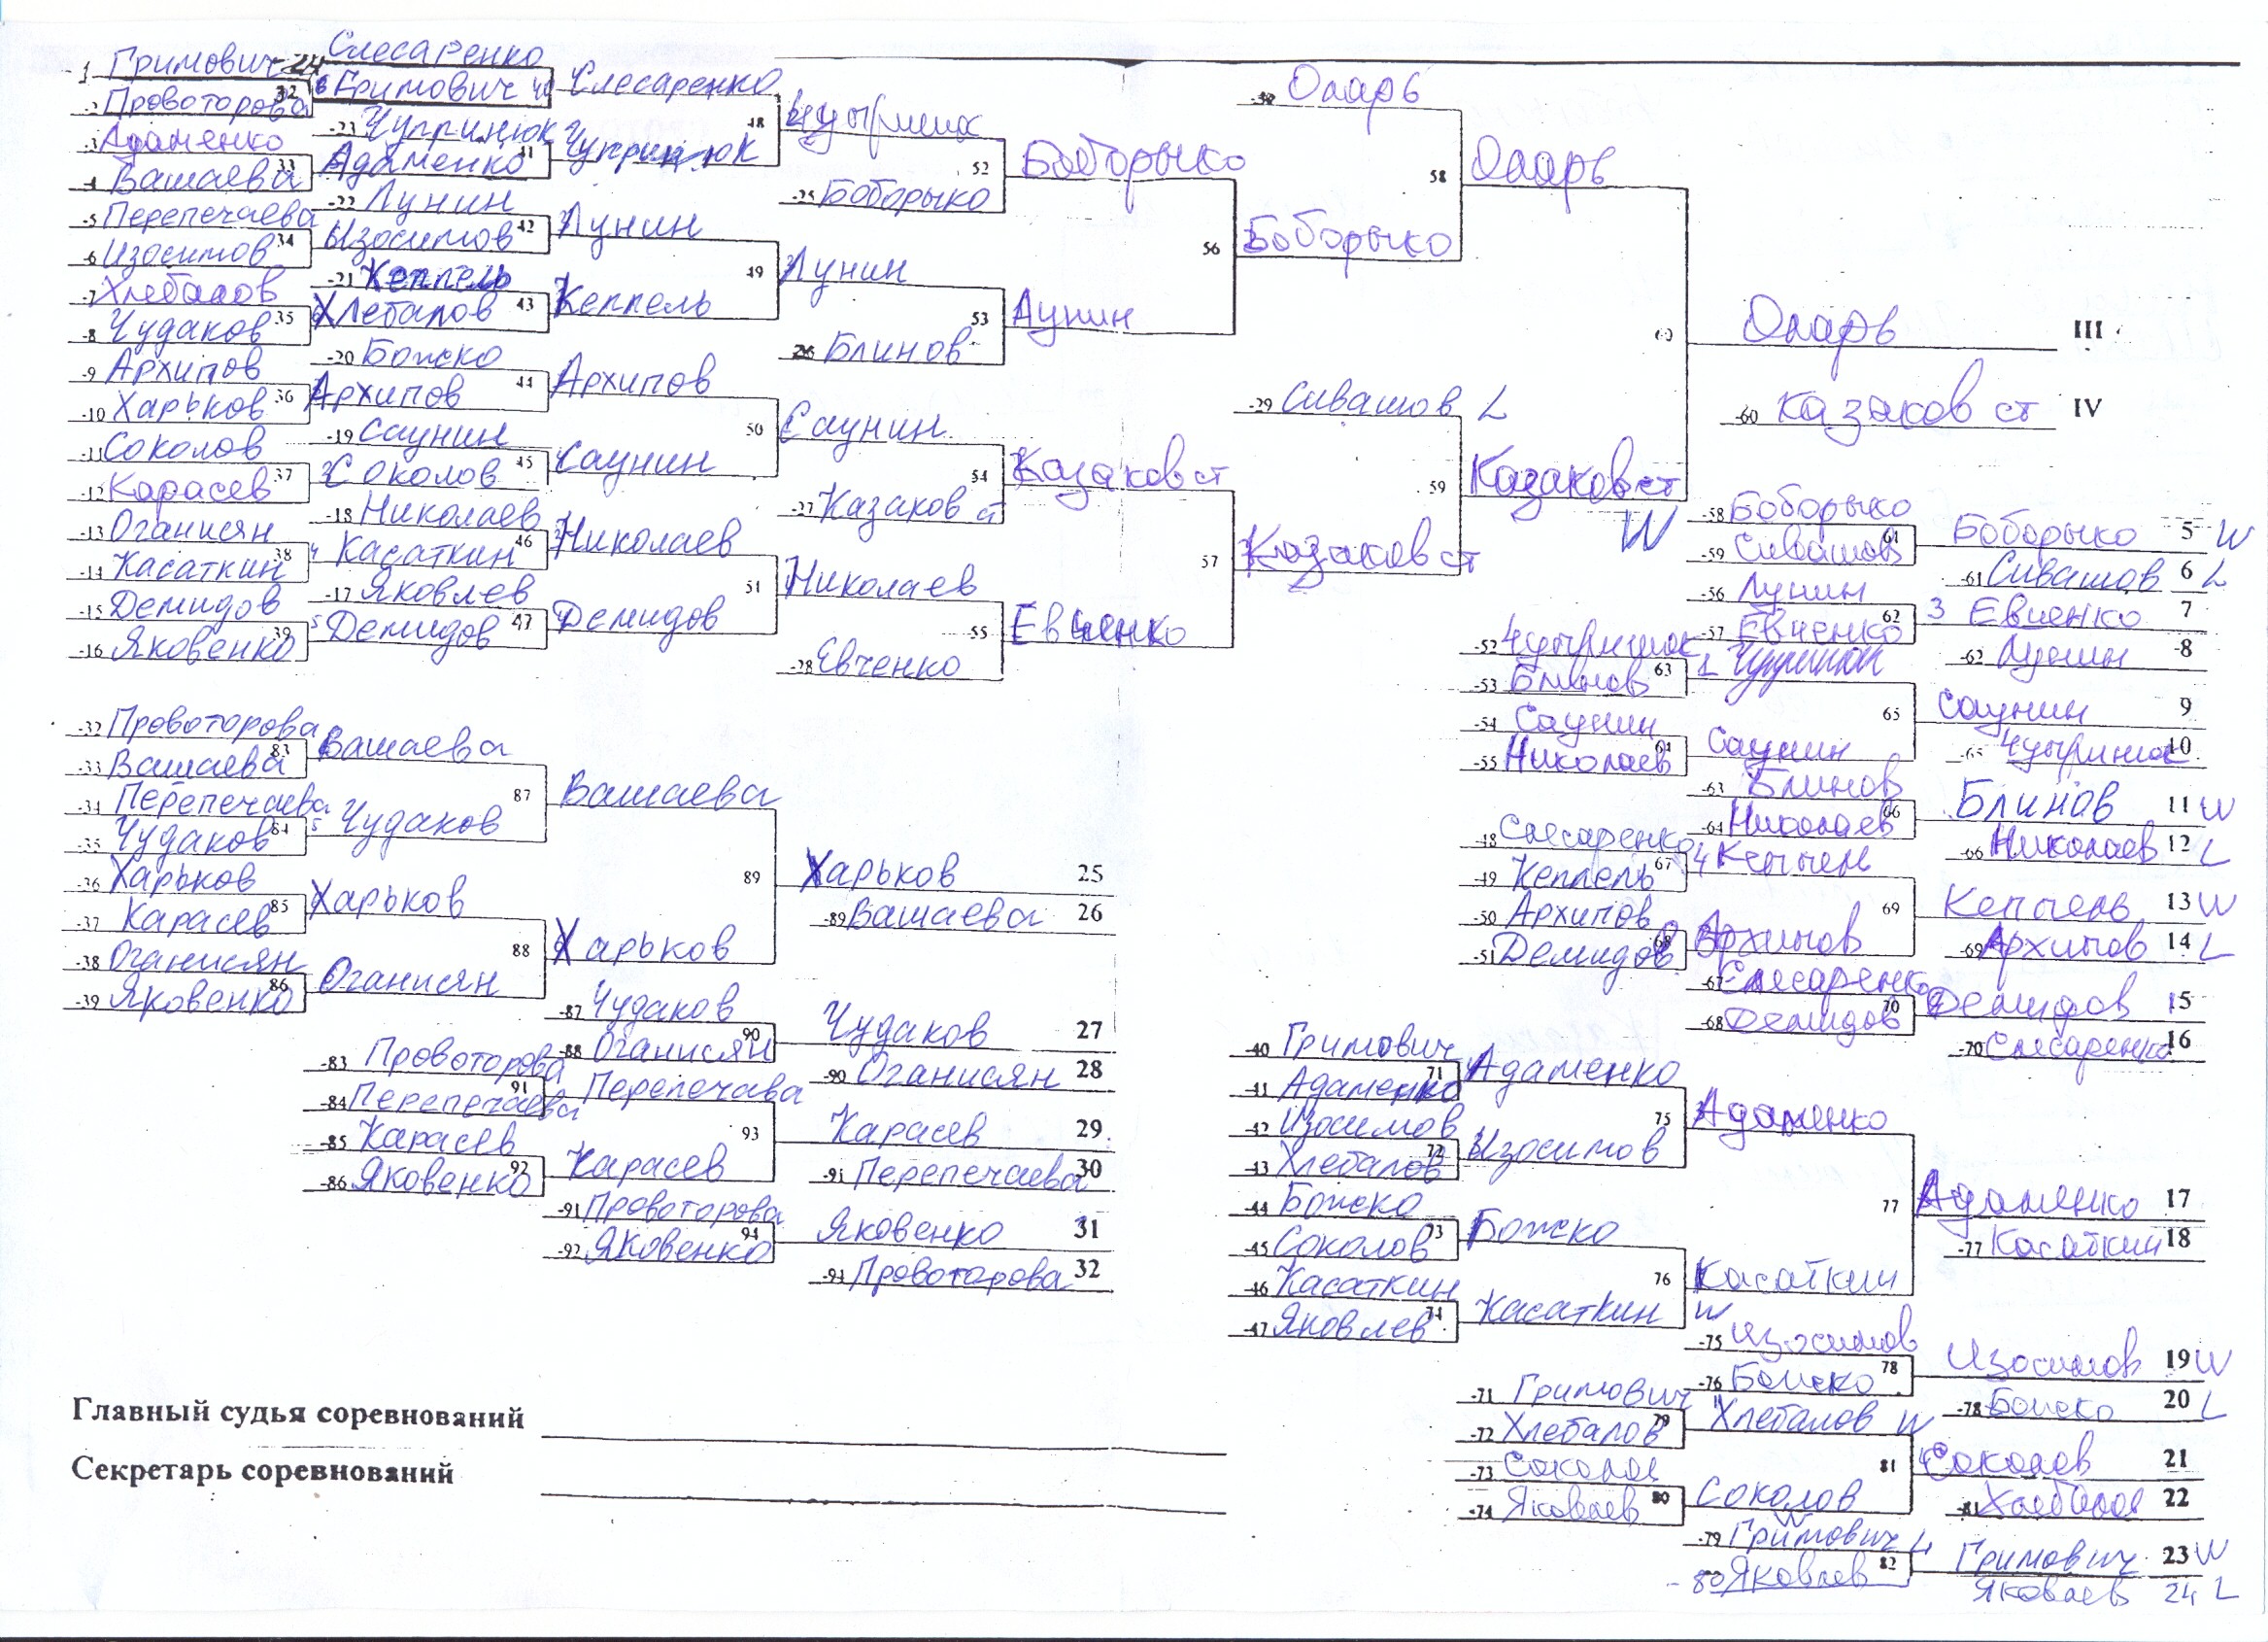 -1 Гримович
-24 Слесаренко
-2 Провоторова
32
Гримович
40
Слесаренко
-3 Адаменко
-23 Чупринюк
-4 Вашаева
33
Адаменко
41
Чупринюк
48
-5 Перепечаева
-22 Лунин
-6 Изосимов
34
Изосимов
42
Лунин
-7 Хлебалов
-21 Кеппель
-8 Чудаков
35
Хлебалов
43
Кеппель
49
-9 Архипов
-20 Божско
-10 Харьков
36
Архипов
44
Архипов
-11 Соколов
-19 Саунин
-12 Карасев
37
Соколов
45
Саунин
50
-13 Оганисян
-18 Николаев
-14 Касаткин
38
Касаткин
46
Николаев
-15 Демидов
-17 Яковлев
-16 Яковенко
39
Демидов
47
Демидов
51
-25 Боборыко
52
Боборыко
Лунин
Блинов
53
Лунин
56
Боборыко
Саунин
-27 Казаков ст
54
Казаков ст
Николаев
-28 Евченко
55
Евченко
57
Казаков ст
Опарь
58
Опарь
-29 Сивашов L
59
Казаков ст
W
60
Опарь III
-60 Казаков ст IV
-58 Боборыко
-59 Сивашов
61
Боборыко 5 W
-61 Сивашов 6 L
-56 Лунин
-57 Евченко
62
3 Евченко 7
-62 Лунин 8
-52 Чупринюк
-53 Блинов
63
Чупринюк
-54 Саунин
-55 Николаев
64
Саунин
65
Саунин 9
-65 Чупринюк 10
-63 Блинов
-64 Николаев
66
Блинов 11 W
-66 Николаев 12 L
-48 Слесаренко
-49 Кеппель
67
4 Кеппель
-50 Архипов
-51 Демидов
68
Архипов
69
Кеппель 13 W
-69 Архипов 14 L
-67 Слесаренко
-68 Демидов
70
Демидов 15
-70 Слесаренко 16
-32 Провоторова
-33 Вашаева
83
Вашаева
-34 Перепечаева
-35 Чудаков
84
Чудаков
87
Вашаева
-36 Харьков
-37 Карасев
85
Харьков
-38 Оганисян
-39 Яковенко
86
Оганисян
88
Харьков
89
Харьков 25
-89 Вашаева 26
-87 Чудаков
-88 Оганисян
90
Чудаков 27
-90 Оганисян 28
-83 Провоторова
-84 Перепечаева
91
Перепечава
-85 Карасев
-86 Яковенко
92
Карасев
93
Карасев 29
-93 Перепечаева 30
-91 Провоторова
-92 Яковенко
94
Яковенко 31
-94 Провоторова 32
-40 Гримович
-41 Адаменко
71
Адаменко
-42 Изосимов
-43 Хлебалов
72
Изосимов
75
Адаменко
-44 Божско
-45 Соколов
73
Божско
-46 Касаткин
-47 Яковлев
74
Касаткин W
76
Касаткин
77
Адаменко 17
-77 Касаткин 18
-75 Изосимов
-76 Божско
78
Изосимов 19 W
-78 Божско 20 L
-71 Гримович
-72 Хлебалов
79
Хлебалов W
-73 Соколов
-74 Яковлев
80
Соколов
81
Соколов 21
-81 Хлебалов 22
-79 Гримович L
-80 Яковлев
82
Гримович 23 W
Яковлев 24 L
Главный судья соревнований
Секретарь соревнований